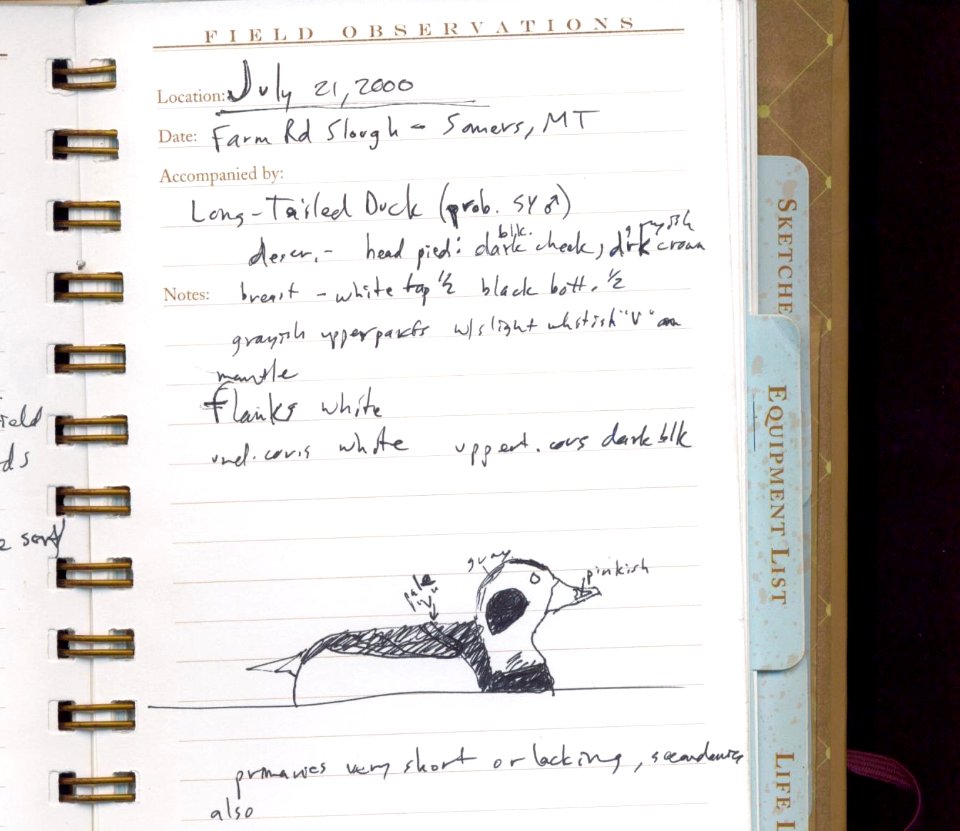 FIELD OBSERVATIONS
Location: July 21, 2000
Date: Farm Rd Slough - Somers, MT
Accompanied by:
Long-Tailed Duck (prob. SY ♂)
blk. grayish
descr. - head pied: dark cheek, drk crown
Notes: breast - white top 1/2 black bott. 1/2
grayish upperparts w/slight whitish "V" on
mantle
Flanks white
und. covrs white uppert. covs dark blk
gray
pinkish
pale
primaries very short or lacking, secondaries
also
ield
ds
e sort
SKETCHE
EQUIPMENT LIST
LIFE L